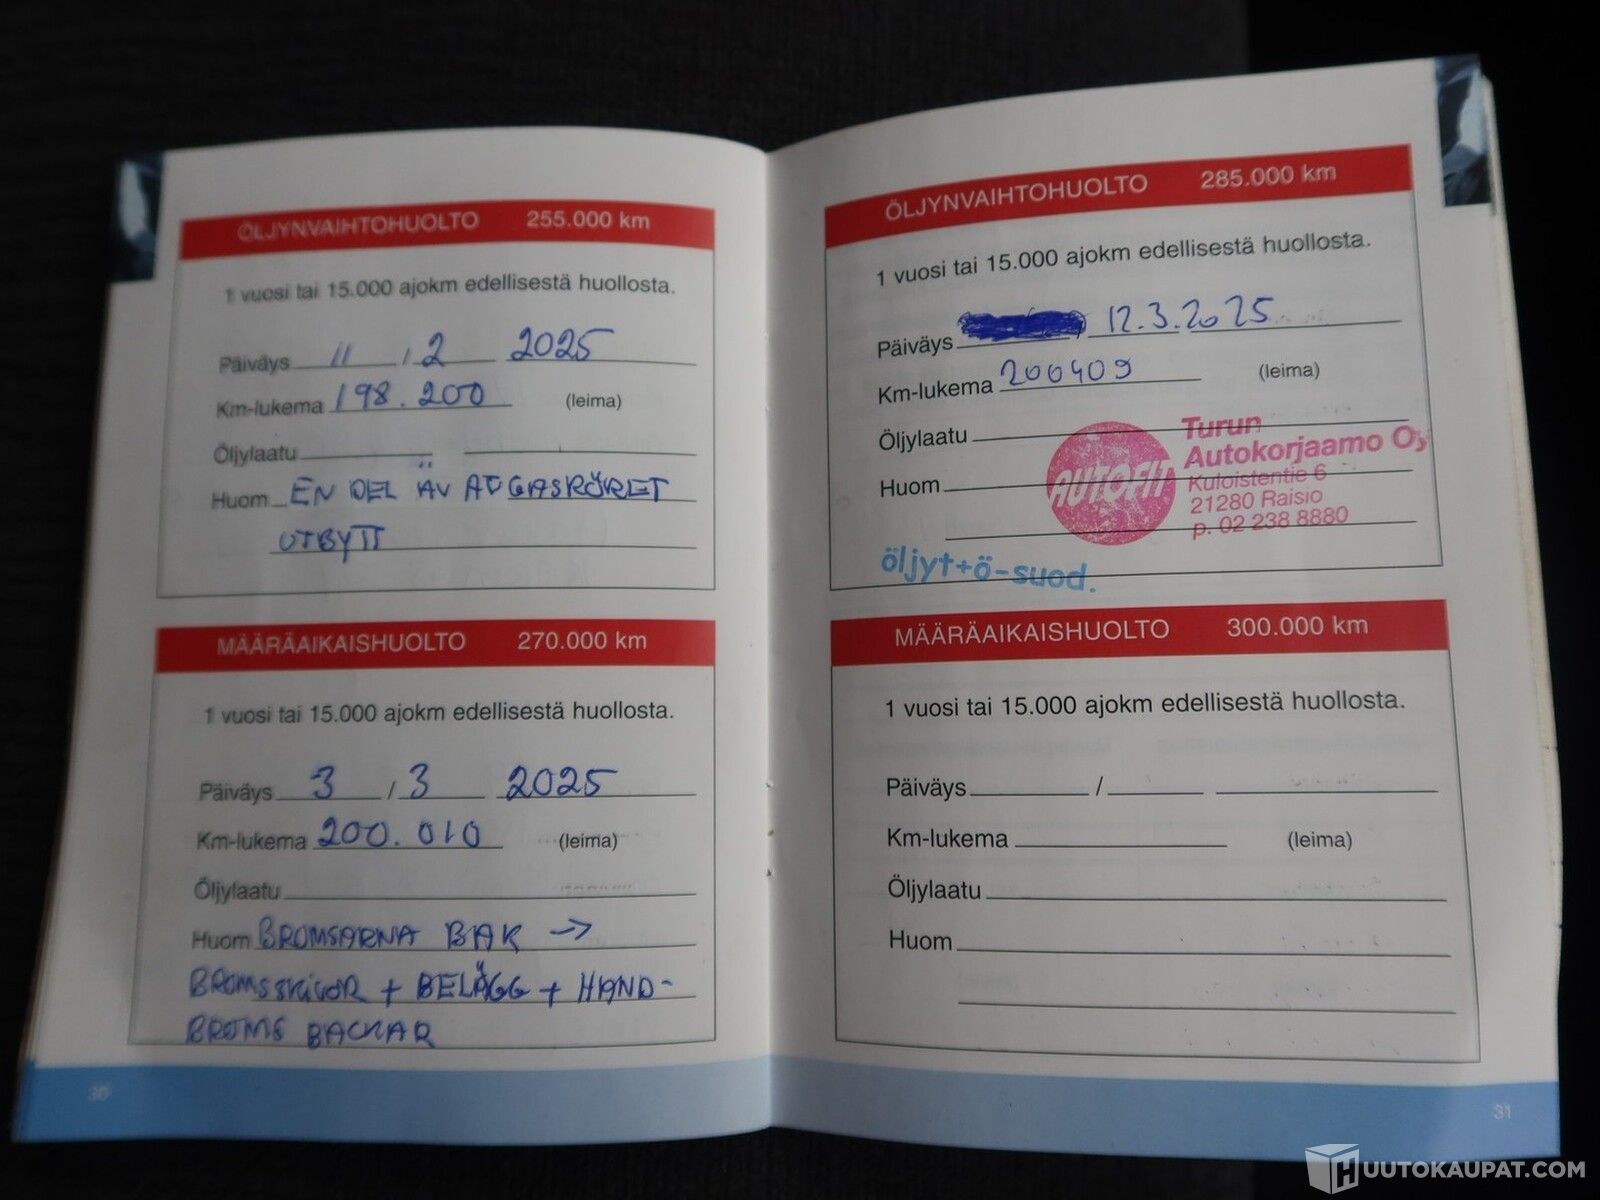 ÖLJYNVAIHTOHUOLTO 255.000 km
1 vuosi tai 15.000 ajokm edellisestä huollosta.
Päiväys 11 / 2 2025
Km-lukema 198.200 (leima)
Öljylaatu
Huom EN DEL ÄV AVGASRÖRET
UTBYTT
MÄÄRÄAIKAISHUOLTO 270.000 km
1 vuosi tai 15.000 ajokm edellisestä huollosta.
Päiväys 3 / 3 2025
Km-lukema 200.010 (leima)
Öljylaatu
Huom BROMSARNA BAK →
BROMSSKIVOR + BELÄGG + HAND-
BROMS BACKAR
30
ÖLJYNVAIHTOHUOLTO 285.000 km
1 vuosi tai 15.000 ajokm edellisestä huollosta.
Päiväys 12.3.2025
Km-lukema 200409 (leima)
Öljylaatu
Huom
AUTOFIT
Turun
Autokorjaamo Oy
Kuloistentie 6
21280 Raisio
p. 02 238 8880
öljyt+ö-suod.
MÄÄRÄAIKAISHUOLTO 300.000 km
1 vuosi tai 15.000 ajokm edellisestä huollosta.
Päiväys /
Km-lukema (leima)
Öljylaatu
Huom
31
HUUTOKAUPAT.COM